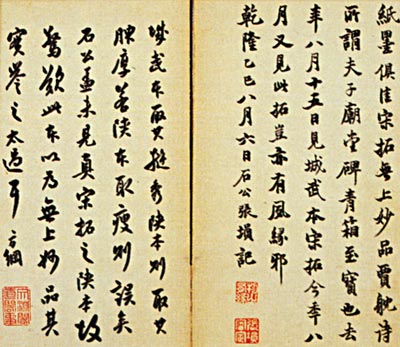 紙墨俱佳宋拓無上妙品賈躭詩
所謂夫子廟堂碑青箱至寶也去
年八月十五日見城武本宋拓今年八
月又見此拓豈亦有風緣邪
乾隆乙巳八月六日石公張塤記
城武本取其挺秀陝本則取其
腴厚若陝本取瘦則誤矣
石公蓋未見真宋拓之陝本故
驚歎此本以為無上妙品其
實譽之太過耳 方綱